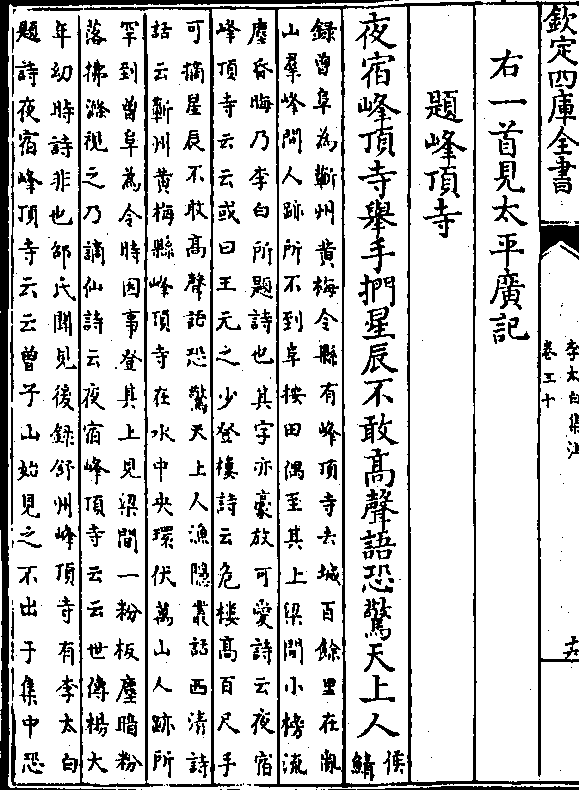 欽定四庫全書
李太白集注
卷三十
右一首見太平廣記
題峰頂寺
夜宿峰頂寺舉手捫星辰不敢高聲語恐驚天上人
侯
鯖
錄曾阜為蘄州黄梅令縣有峰頂寺去城百餘里在亂
山羣峰間人跡所不到阜按田偶至其上梁間小榜流
塵昏晦乃李白所題詩也其字亦豪放可愛詩云夜宿
峰頂寺云云或曰王元之少登樓詩云危樓高百尺手
可摘星辰不敢高聲語恐驚天上人漁隱叢話西清詩
話云蘄州黄梅縣峰頂寺在水中央環伏萬山人跡所
罕到曾阜為令時因事登其上見梁間一粉板塵暗粉
落拂滌視之乃謫仙詩云夜宿峰頂寺云云世傳楊大
年幼時詩非也邵氏聞見後錄舒州峰頂寺有李太白
題詩夜宿峰頂寺云云曾子山始見之不出于集中恐